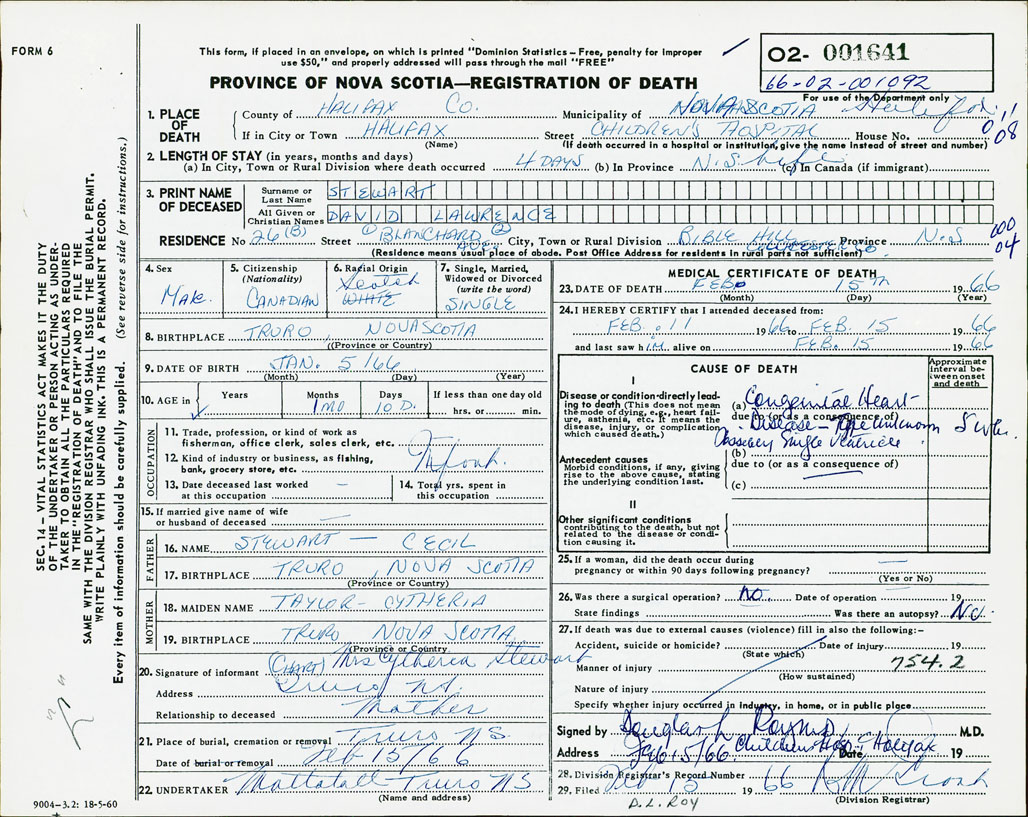 FORM 6
This form, if placed in an envelope, on which is printed "Dominion Statistics – Free, penalty for improper
use $50," and properly addressed will pass through the mail "FREE"
PROVINCE OF NOVA SCOTIA—REGISTRATION OF DEATH
O2- 001641
66-02-001092
For use of the Department only
1. PLACE OF DEATH
County of HALIFAX CO. Municipality of NOVA SCOTIA
If in City or Town HALIFAX Street CHILDREN'S HOSPITAL House No.
(Name) (If death occurred in a hospital or institution, give the name instead of street and number)
08
2. LENGTH OF STAY (in years, months and days)
(a) In City, Town or Rural Division where death occurred 4 DAYS (b) In Province N.S. life (c) In Canada (if immigrant)
3. PRINT NAME OF DECEASED
Surname or Last Name STEWART
All Given or Christian Names DAVID LAWRENCE
RESIDENCE No. 26 (B) Street (1) BLANCHARD AVE (2) City, Town or Rural Division BIBLE HILL COLCHESTER CO. Province N.S.
(Residence means usual place of abode. Post Office Address for residents in rural parts not sufficient)
04
4. Sex
MALE
5. Citizenship
(Nationality)
CANADIAN
6. Racial Origin
Scotch
WHITE
7. Single, Married, Widowed or Divorced
(write the word)
SINGLE
8. BIRTHPLACE TRURO NOVA SCOTIA
(Province or Country)
9. DATE OF BIRTH JAN. 5/66
(Month) (Day) (Year)
10. AGE in Years Months Days If less than one day old
1 MO 10 D. hrs. or min.
OCCUPATION
11. Trade, profession, or kind of work as fishermen, office clerk, sales clerk, etc.
12. Kind of industry or business, as fishing, bank, grocery store, etc.
13. Date deceased last worked at this occupation –
14. Total yrs. spent in this occupation
15. If married give name of wife or husband of deceased –
FATHER
16. NAME STEWART – CECIL
17. BIRTHPLACE TRURO, NOVA SCOTIA
(Province or Country)
MOTHER
18. MAIDEN NAME TAYLOR – CYTHERIA
19. BIRTHPLACE TRURO NOVA SCOTIA
(Province or Country)
20. Signature of informant (CHART) Mrs Cytheria Stewart
Address Truro NS.
Relationship to deceased Mother
21. Place of burial, cremation or removal Truro NS.
Date of burial or removal Feb 15/66
22. UNDERTAKER Mattatall Truro NS
(Name and address)
MEDICAL CERTIFICATE OF DEATH
23. DATE OF DEATH FEB 15TH 1966
(Month) (Day) (Year)
24. I HEREBY CERTIFY that I attended deceased from:
FEB. 11 1966 to FEB. 15 1966
and last saw him alive on FEB. 15 1966
CAUSE OF DEATH
Approximate interval between onset and death
I
Disease or condition directly leading to death (This does not mean the mode of dying, e.g., heart failure, asthenia, etc. It means the disease, injury, or complication which caused death.)
(a) Congenital Heart
due to (or as a consequence of)
Disease – Type unknown
Single Ventricle
5 wks.
Antecedent causes
Morbid conditions, if any, giving rise to the above cause, stating the underlying condition last.
(b)
due to (or as a consequence of)
(c)
II
Other significant conditions
contributing to the death, but not related to the disease or condition causing it.
25. If a woman, did the death occur during pregnancy or within 90 days following pregnancy? –
(Yes or No)
26. Was there a surgical operation? NO. Date of operation – 19
State findings Was there an autopsy? NO.
27. If death was due to external causes (violence) fill in also the following:–
Accident, suicide or homicide? Date of injury 19
(State which)
Manner of injury 754.2
(How sustained)
Nature of injury
Specify whether injury occurred in industry, in home, or in public place
Signed by Douglas L. Roy M.D.
Address Children Hosp Halifax Date Feb 15/66 19
28. Division Registrar's Record Number
29. Filed Feb 15 1966
(Division Registrar)
D. L. ROY
SEC. 14 – VITAL STATISTICS ACT MAKES IT THE DUTY
OF THE UNDERTAKER OR PERSON ACTING AS UNDER-
TAKER TO OBTAIN ALL THE PARTICULARS REQUIRED
IN THE "REGISTRATION OF DEATH" AND TO FILE THE
SAME WITH THE DIVISION REGISTRAR WHO SHALL ISSUE THE BURIAL PERMIT.
WRITE PLAINLY WITH UNFADING INK. THIS IS A PERMANENT RECORD.
Every item of information should be carefully supplied. (See reverse side for instructions.)
9004–3.2: 18-5-60